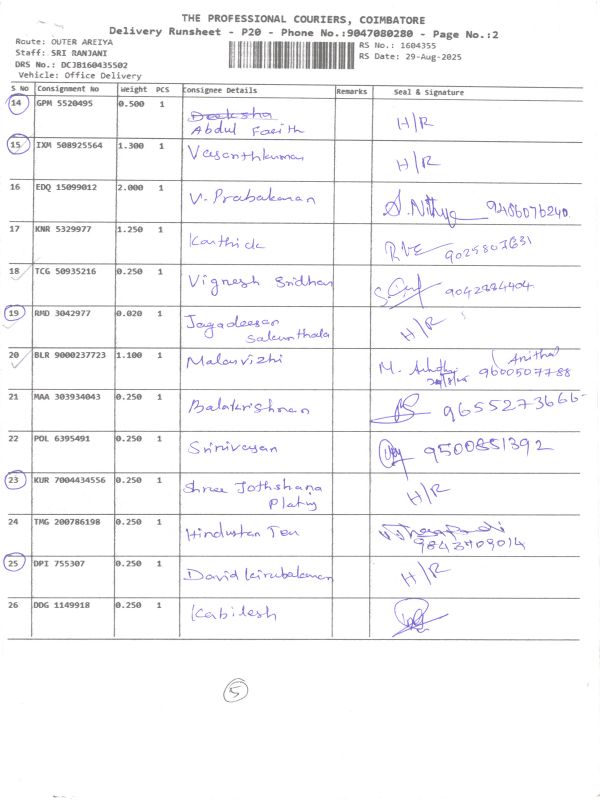 THE PROFESSIONAL COURIERS, COIMBATORE
Delivery Runsheet - P20 - Phone No.:9047080280 - Page No.:2
Route: OUTER AREIYA
Staff: SRI RANJANI
DRS No.: DCJB160435502
Vehicle: Office Delivery
RS No.: 1604355
RS Date: 29-Aug-2025
S No Consignment No Weight PCS Consignee Details Remarks Seal & Signature
14 GPM 5520495 0.500 1 Deeksha
Abdul Farith H/R
15 IXM 508925564 1.300 1 Vasanthkumar H/R
16 EDQ 15099012 2.000 1 V. Prabakaran S. Nithya 9486076240
17 KNR 5329977 1.250 1 Karthick 9025807631
18 TCG 50935216 0.250 1 Vignesh Sridhar 9042784404
19 RMD 3042977 0.020 1 Jagadeesan
Sakunthala H/R
20 BLR 9000237723 1.100 1 Malarvizhi M. (Anitha)
9600507788
21 MAA 303934043 0.250 1 Balakrishnan 9655273666
22 POL 6395491 0.250 1 Srinivasan 9500851392
23 KUR 7004434556 0.250 1 Shree Jothshana
Plating H/R
24 TMG 200786198 0.250 1 Hindustan Tex
9843709014
25 DPI 755307 0.250 1 David Kirubakaran H/R
26 DDG 1149918 0.250 1 Kabilesh
5